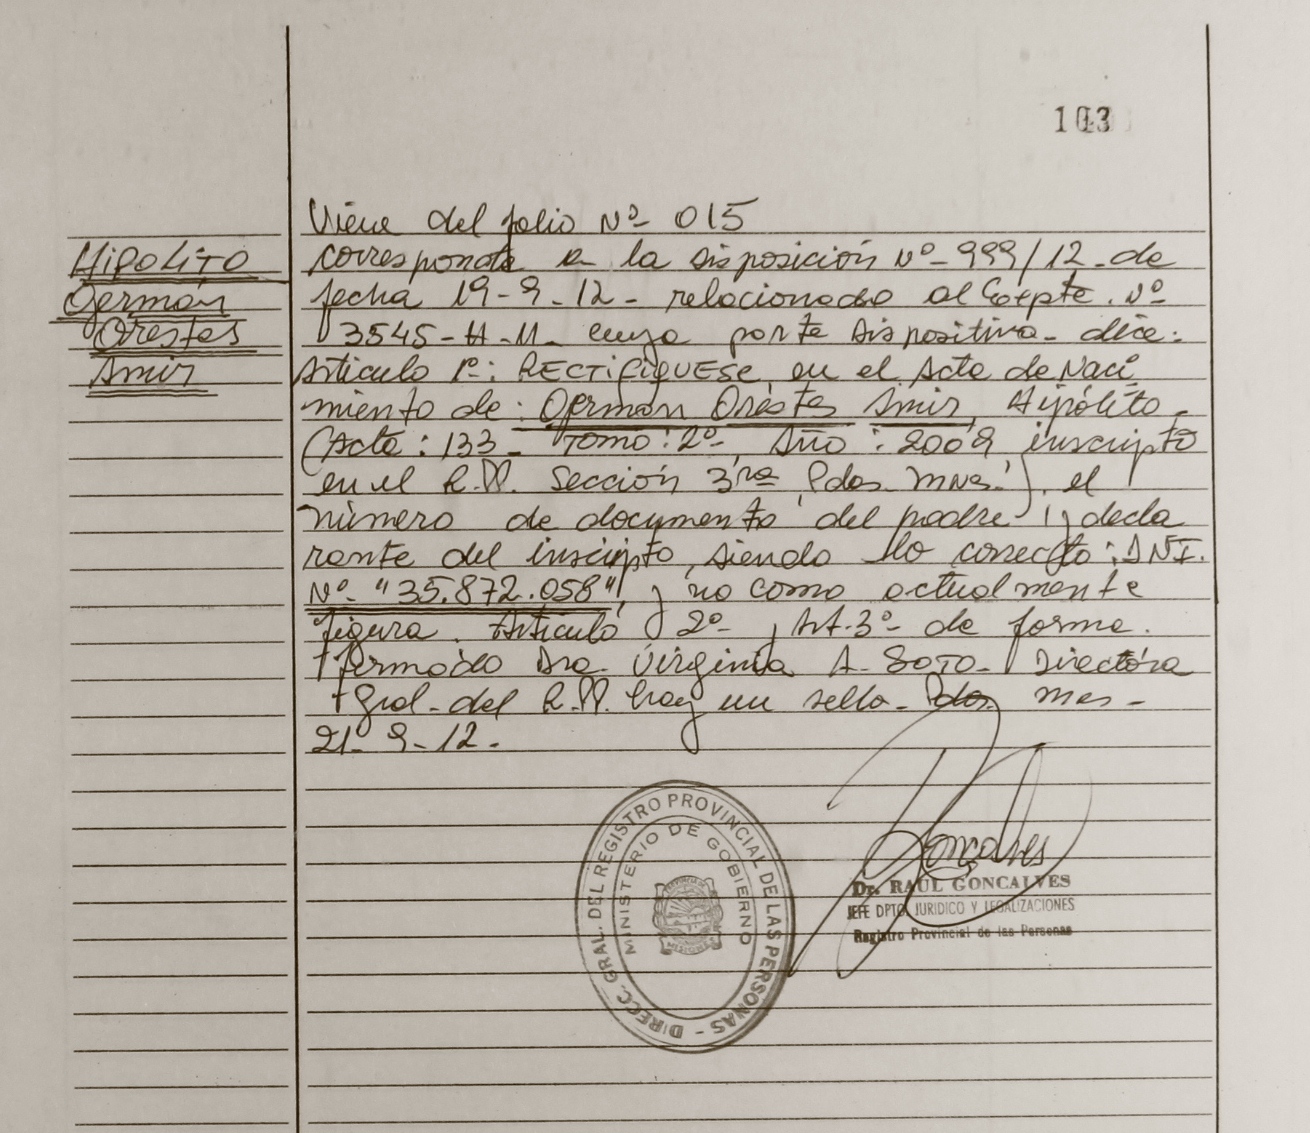 103
Viene del folio Nº 015
HIPOLITO
corresponde a la disposición Nº 999/12 de
Germán
fecha 19-9-12- relacionado al Expte. Nº
Orestes
3545-H-11- cuya parte dispositiva- dice:
Amir
Articulo 1º: RECTIFIQUESE, en el Acta de Naci
miento de: Germán Orestes Amir, Hipólito -
(Acta: 133- Tomo: 2º-, Año: 2009 inscripto
en el R.P. Sección 3ra Pdas. Mnes.), el
número de documento del padre y decla
rante del inscripto, siendo lo correcto: DNI.
Nº "35.872.058", y no como actualmente
figura. Articulo 2º- y Art. 3º- de forma.
firmado Dra. Virginia A. SOTO- Directora
Gral- del R.P. hay un sello- Pdas Mnes-
21-9-12-
DIRECC. GRAL. DEL REGISTRO PROVINCIAL DE LAS PERSONAS -
MINISTERIO DE GOBIERNO
MISIONES
Goncalves
Dr. RAUL GONCALVES
JEFE DPTO. JURIDICO Y LEGALIZACIONES
Registro Provincial de las Personas